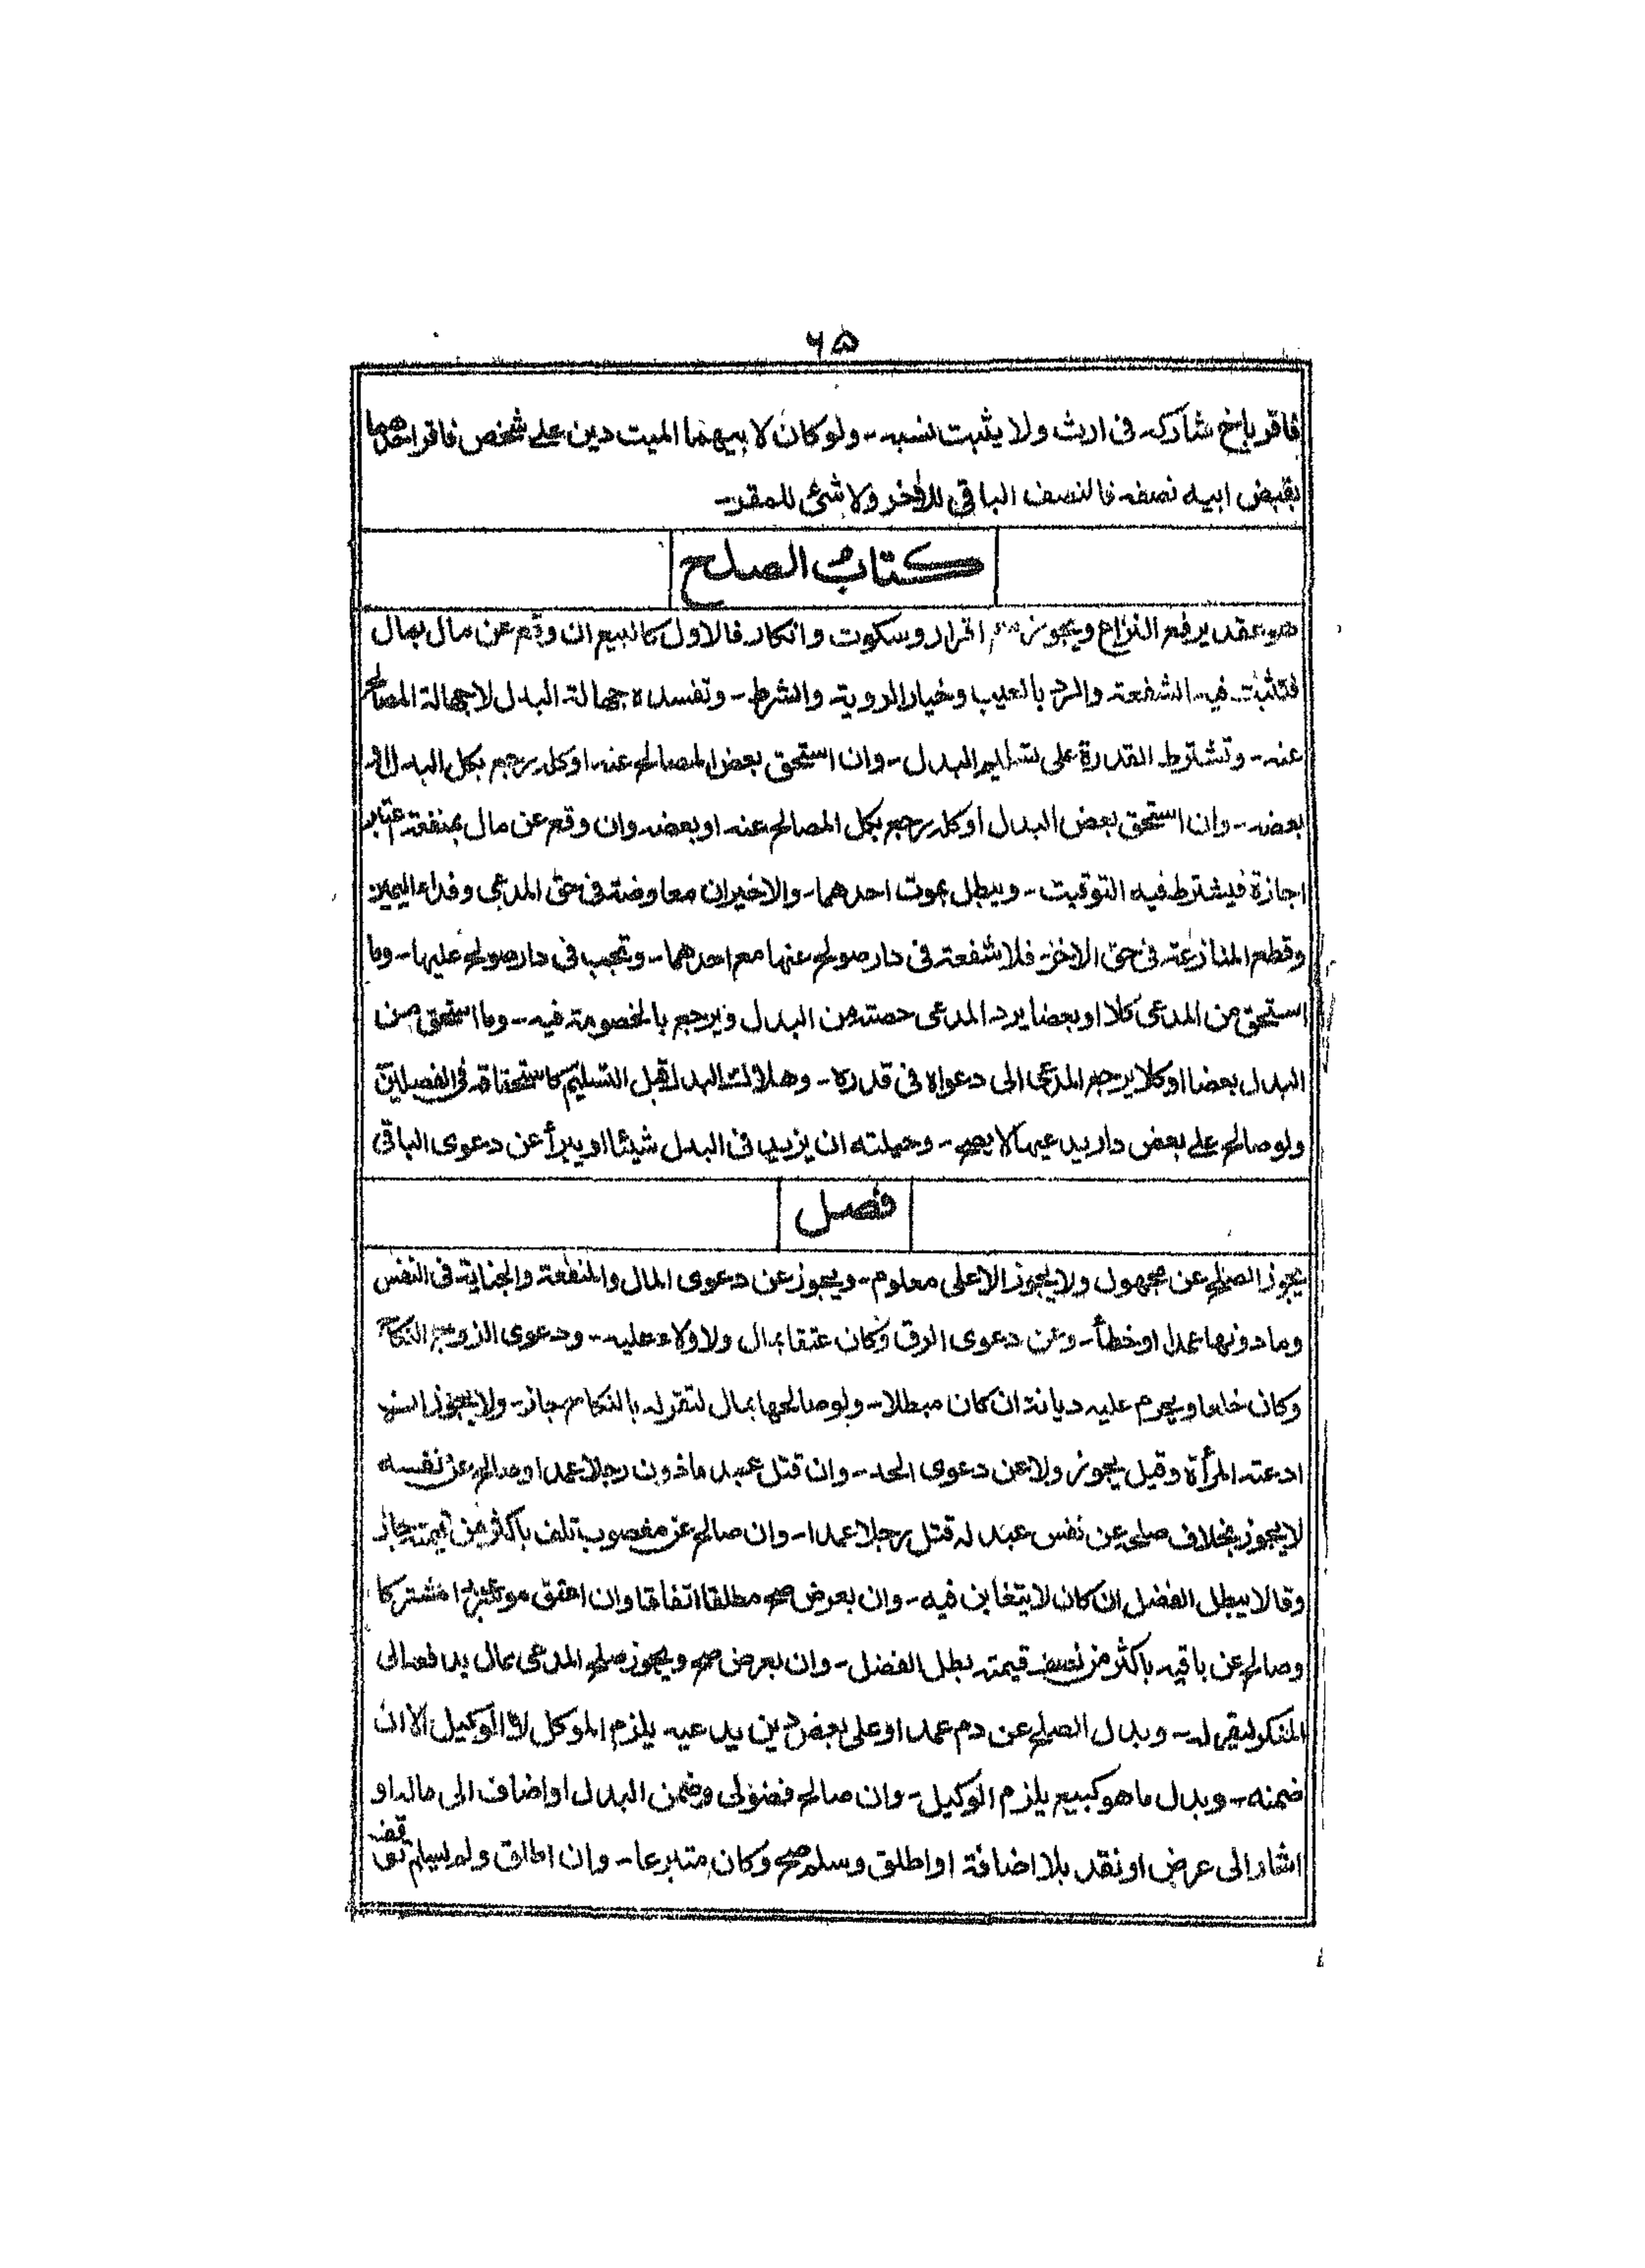 ۶۵
فاقر باخ شاركه فى ارث ولا يثبت نسبه - ولو كان لابيهما الميت دين على شخص فاقر احدهما
بقبض ابيه نصفه فالنصف الباقى للآخر ولا شئ للمقر -
كتاب الصلح
هو عقد يرفع النزاع ويجوز مع اقرار وسكوت وانكار فالاول كالبيع ان وقع عن مال بمال
فتثبت فيه الشفعة والرد بالعيب وخيار الروية والشرط - وتفسده جهالة البدل لا جهالة المصالح
عنه - وتشترط القدرة على تسليم البدل - وان استحق بعض المصالح عنه او كله رجع بكل البدل او
بعضه - وان استحق بعض البدل او كله رجع بكل المصالح عنه او بعضه وان وقع عن مال بمنفعة اعتبر
اجازة فيشترط فيه التوقيت - ويبطل بموت احدهما - والاخيران معاوضة فى حق المدعى وفداء اليمين
وقطع المنازعة فى حق الاخر - فلا شفعة فى دار صولح عنها مع احدهما - وتجب فى دار صولح عليها - وما
استحق من المدعى كلا او بعضا يرد المدعى حصته من البدل ويرجع بالخصومة فيه - وما استحق من
البدل بعضا او كلا يرجع المدعى الى دعواه فى قدره - وهلاك البدل قبل التسليم كاستحقاقه فى الفصلين
ولو صالح على بعض دار يدعيها لا يصح - وحيلته ان يزيد فى البدل شيئا او يبرأ عن دعوى الباقى
فصل
يجوز الصلح عن مجهول ولا يجوز الا على معلوم - ويجوز عن دعوى المال والمنفعة والجناية فى النفس
وما دونها عمدا او خطأ - وعن دعوى الرق وكان عتقا بمال ولا ولاء عليه - ودعوى الزوج النكاح
وكان خلعا ويحرم عليه ديانة ان كان مبطلا - ولو صالحها بمال لتقر له بالنكاح جاز - ولا يجوز ان
ادعته المرأة وقيل يجوز ولا عن دعوى الحد - وان قتل عبد ماذون رجلا عمدا وصالح عن نفسه
لا يجوز بخلاف صلحه عن نفس عبد له قتل رجلا عمدا - وان صالح عن مغصوب تلف باكثر من قيمته جاز
وقالا يبطل الفضل ان كان لا يتغابن فيه - وان بعرض صح مطلقا اتفاقا وان اعتق موسر عبدا مشتركا
وصالح عن باقيه باكثر من نصف قيمته بطل الفضل - وان بعرض صح ويجوز صلح المدعى بمال يدفعه الى
المنكر ليقر له - وبدل الصلح عن دم عمد او على بعض دين يدعيه يلزم الموكل لا الوكيل الا ان
ضمنه - وبدل ما هو كبيع يلزم الوكيل - وان صالح فضولى وضمن البدل او اضاف الى ماله او
اشار الى عرض او نقد بلا اضافة او اطلق وسلم صح وكان متبرعا - وان اطلق ولم يسلم توقف